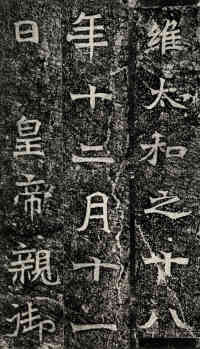 維太和之廿八
年十二月十一
日 皇帝親御